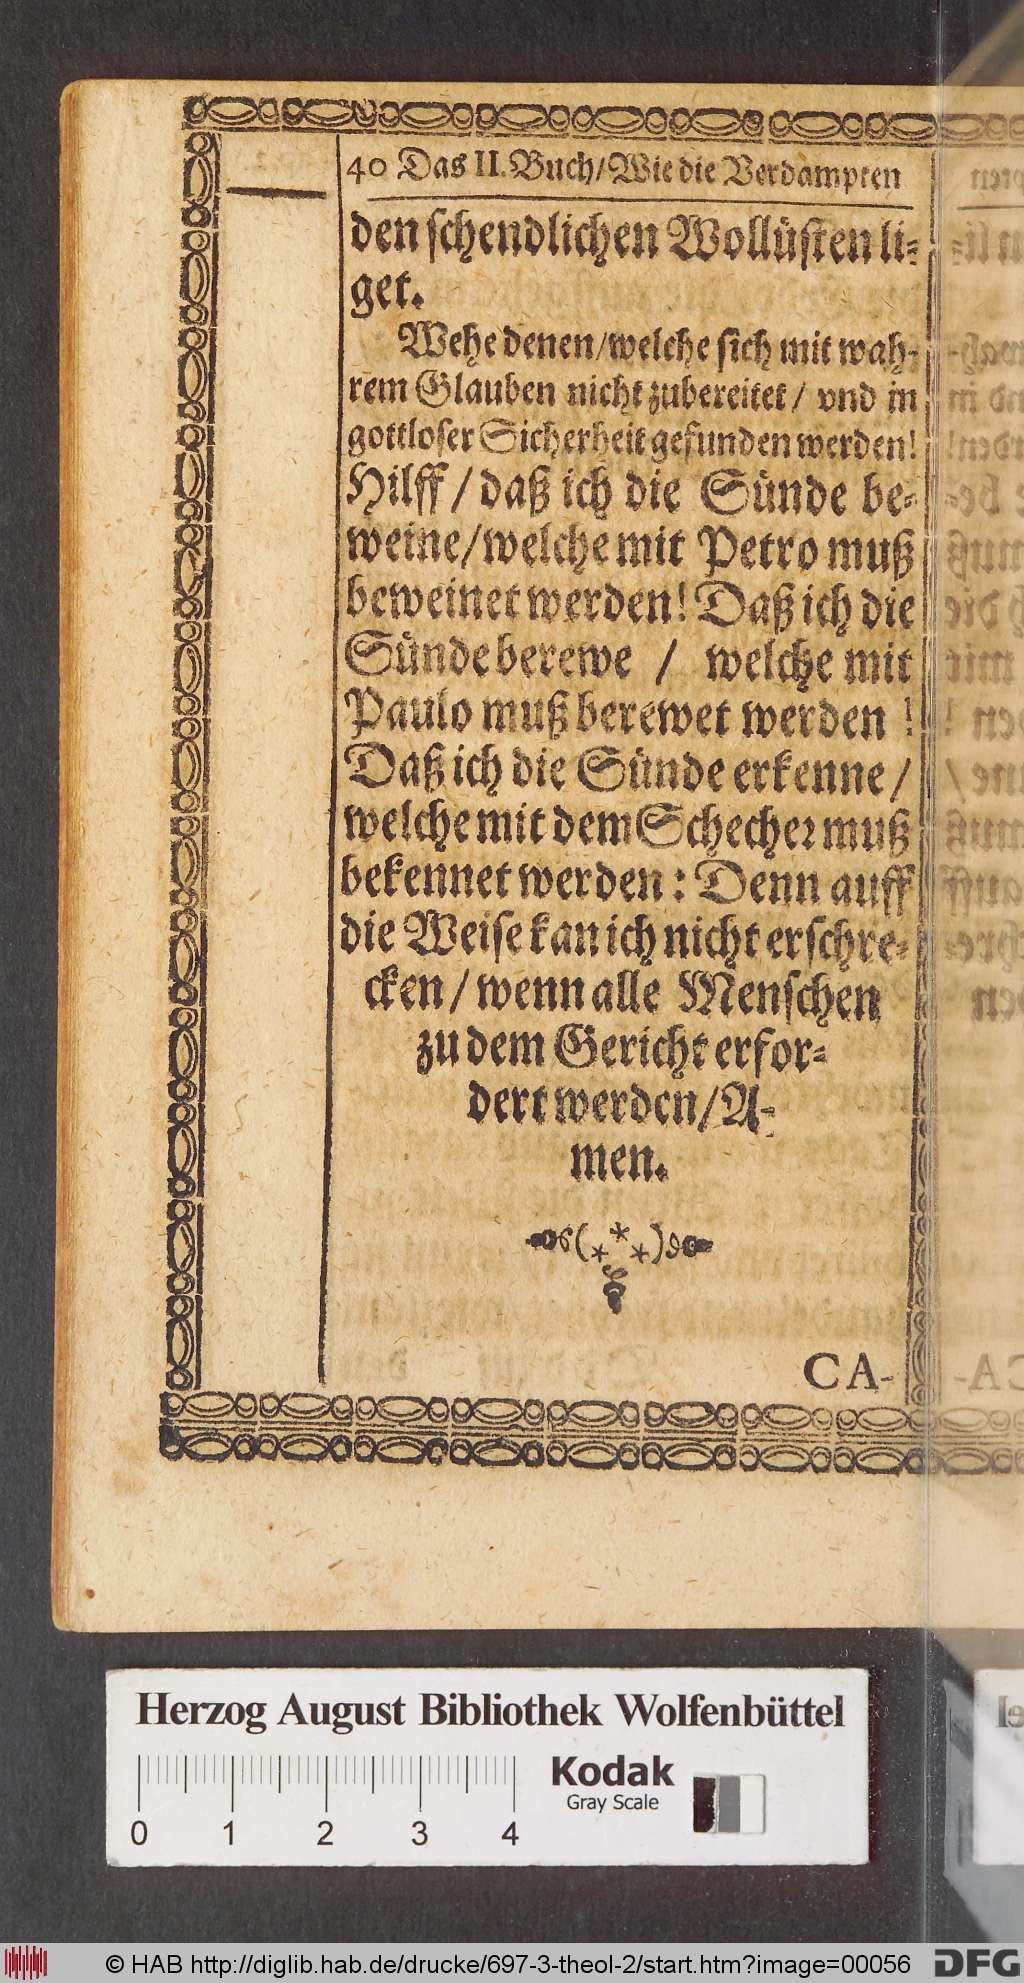 40 Das II. Buch/Wie die Verdampten
den schendlichen Wollüsten li-
get.
Wehe denen/welche sich mit wah-
rem Glauben nicht zubereitet/ vnd in
gottloser Sicherheit gefunden werden!
Hilff/daß ich die Sünde be-
weine/welche mit Petro muß
beweinet werden! Daß ich die
Sünde berewe / welche mit
Paulo muß berewet werden !
Daß ich die Sünde erkenne/
welche mit dem Schecher muß
bekennet werden: Denn auff
die Weise kan ich nicht erschre-
cken/wenn alle Menschen
zu dem Gericht erfor-
dert werden/A-
men.
CA-
Herzog August Bibliothek Wolfenbüttel
Kodak
Gray Scale
0 1 2 3 4
© HAB http://diglib.hab.de/drucke/697-3-theol-2/start.htm?image=00056
DFG